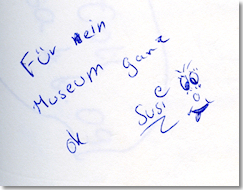 Für ein
Museum ganz
ok Susi